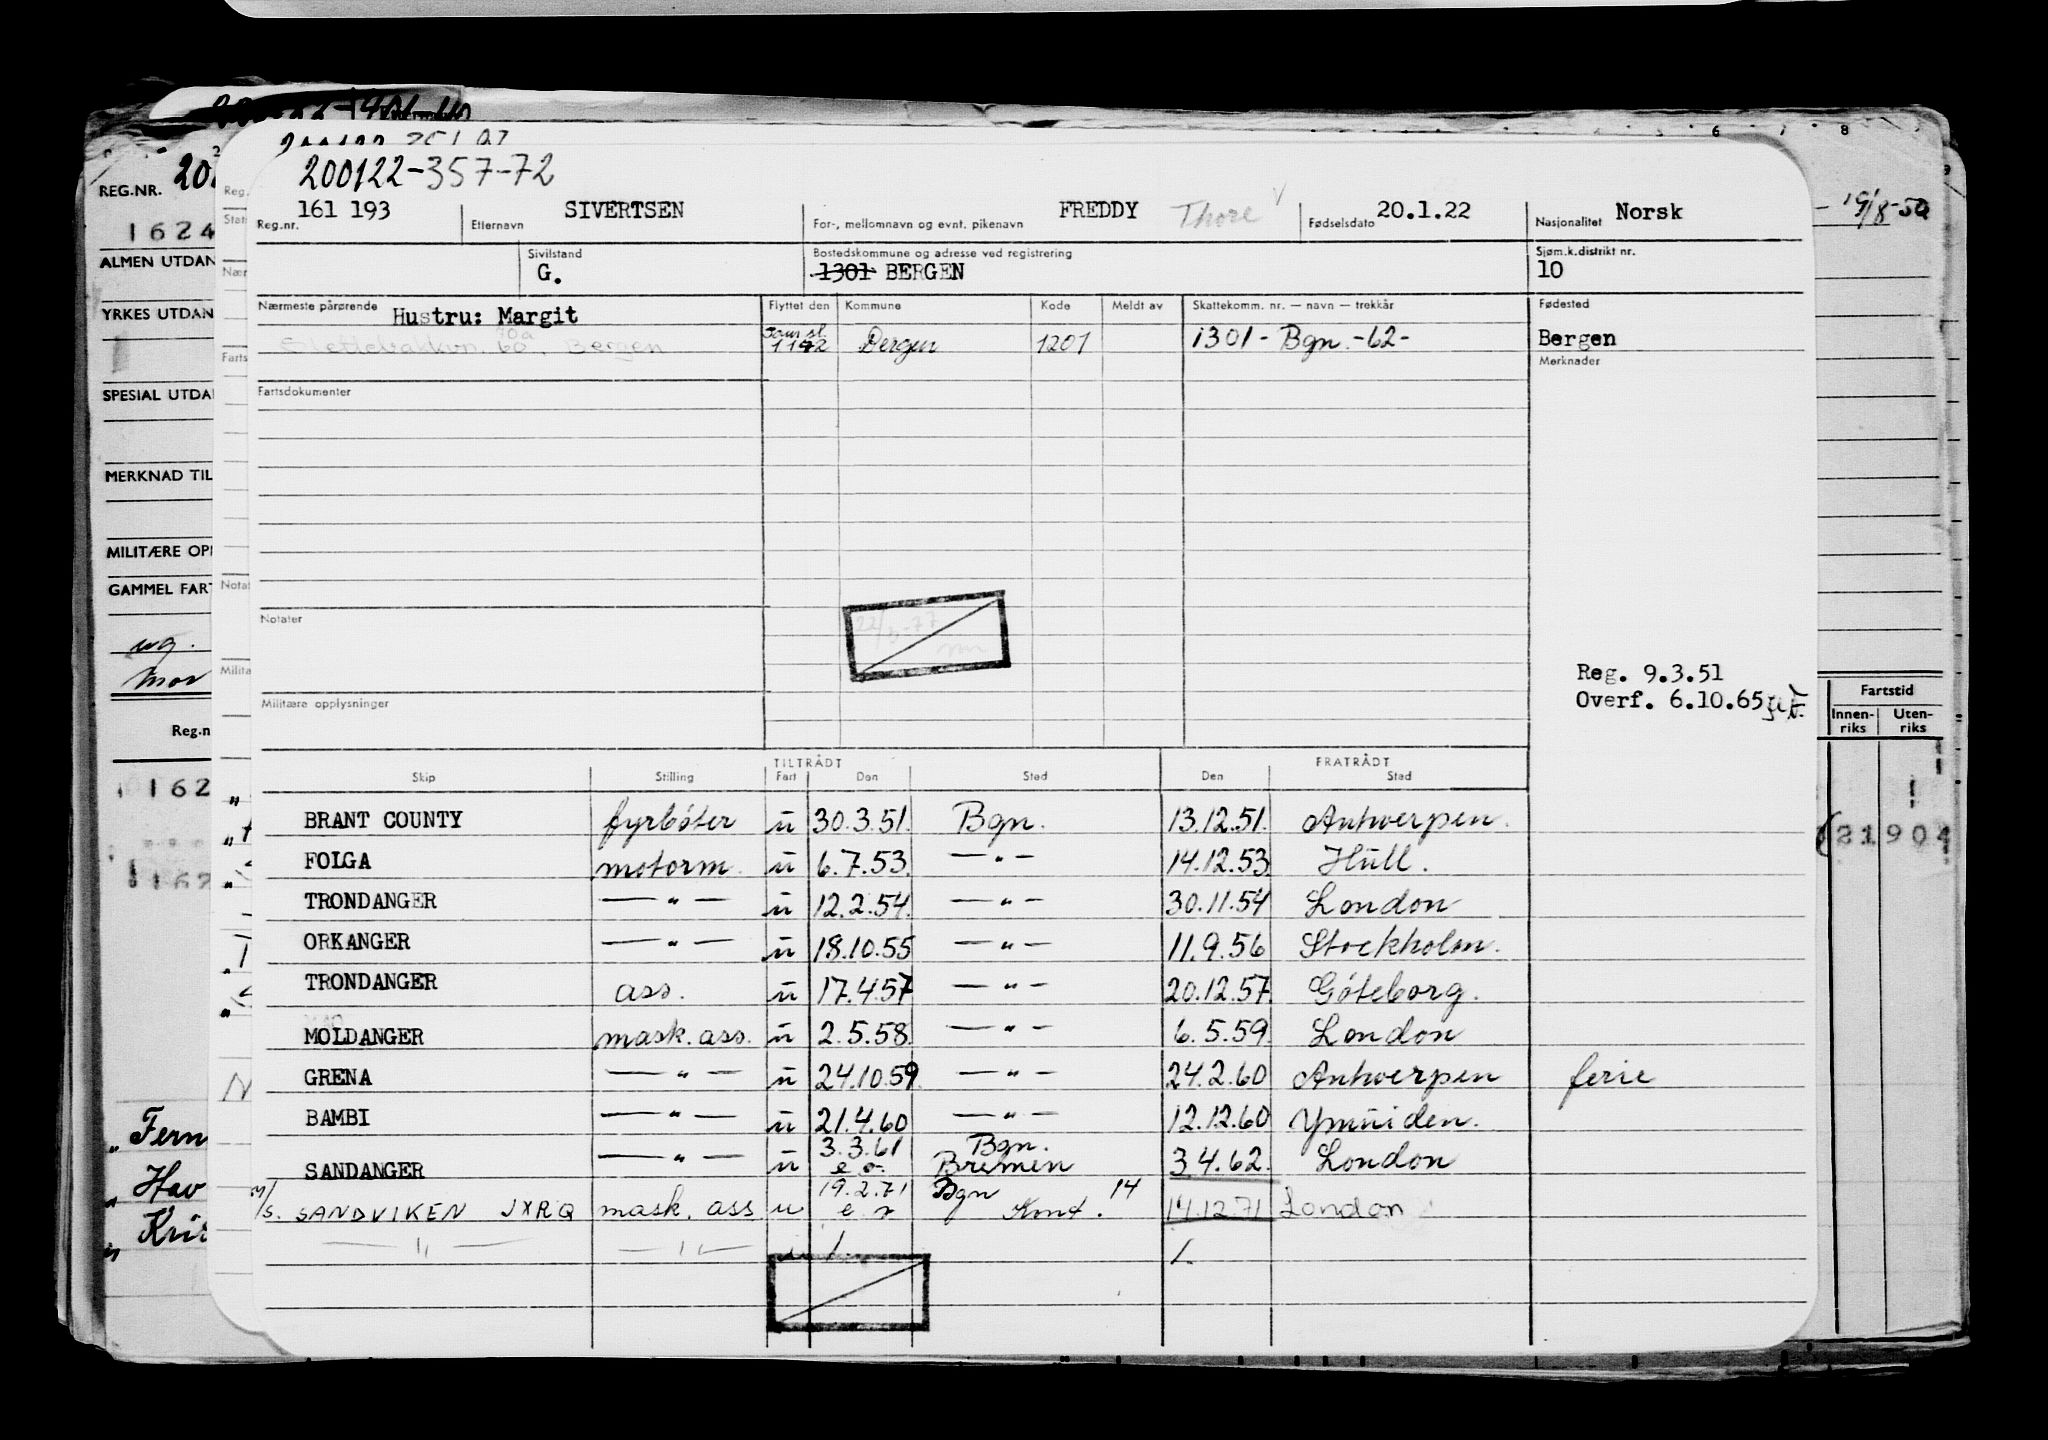 200122-357-72
REG.NR.
Reg.nr. 161 193 Etternavn SIVERTSEN For-, mellomnavn og evnt. pikenavn FREDDY Thore Fødselsdato 20.1.22 Nasjonalitet Norsk
19/8-50
1624
ALMEN UTDAN
Sivilstand G. Bostedskommune og adresse ved registrering 1301 BERGEN Sjøm.k.distrikt nr. 10
YRKES UTDAN
Nærmeste pårørende Hustru: Margit Flyttet den Kommune Kode Meldt av Skattekomm. nr. — navn — trekkår Fødested
Bergen 1201 1301 - Bgn. -62- Bergen
Merknader
SPESIAL UTDA
Fartsdokumenter
MERKNAD TIL
MILITÆRE OP
GAMMEL FAR
Notater
Reg. 9.3.51
Overf. 6.10.65
Militære opplysninger
Fartstid
Innen-riks Uten-riks
TILTRÅDT FRATRÅDT
Skip Stilling Fart Den Sted Den Sted
BRANT COUNTY fyrbøter u 30.3.51. Bgn. 13.12.51. Antwerpen.
21904
FOLGA motorm. u 6.7.53. — " — 14.12.53 Hull.
TRONDANGER — " — u 12.2.54. — " — 30.11.54 London
ORKANGER — " — u 18.10.55 — " — 11.9.56 Stockholm.
TRONDANGER ass. u 17.4.57 — " — 20.12.57. Göteborg.
MOLDANGER mask. ass. u 2.5.58. — " — 6.5.59. London
GRENA — " — u 24.10.59. — " — 24.2.60 Antwerpen ferie
BAMBI — " — u 21.4.60 — " — 12.12.60 Ymuiden.
3.3.61 Bgn.
SANDANGER — " — u e.o. Bremen 3.4.62. London
19.2.71 Bgn 14
M/S. SANDVIKEN JXRQ mask. ass u 14.12.71 London
— " — — " —
Fern
Hav